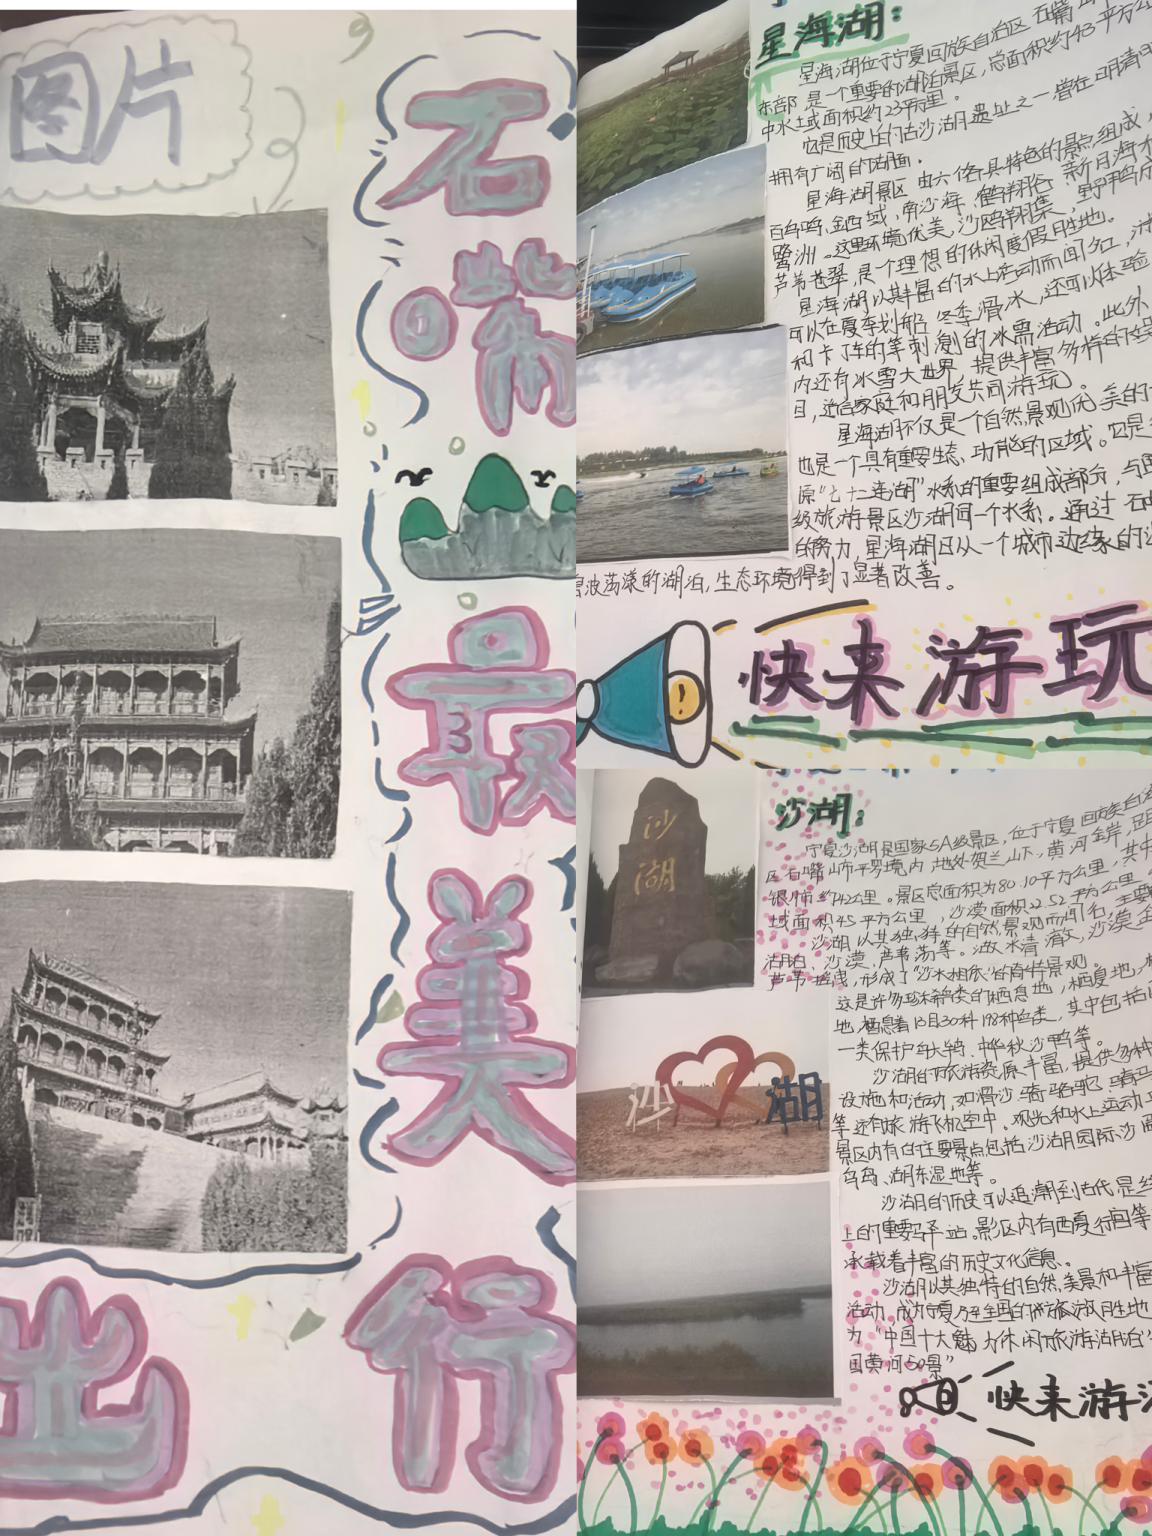 图片
石嘴
最
美
出
行
星海湖：
星海湖位于宁夏回族自治区石嘴
东部是一个重要的湖泊景区，总面积约43平方公
中水域面积约23平方里。
它是历史上的古沙湖遗址之一曾在明清
拥有广阔的湖面．
星海湖景区由六个各具特色的景点组成，
百鸟鸣、金西域，南沙海、鹤翔谷、新月海
鹭洲。这里环境优美，沙鸥翔集，野鸭
芦苇苍翠，是个理想的休闲度假胜地。
星海湖以其丰富的水上运动而闻名，
可以在夏季划船冬季滑冰，还可以体验
和卡丁车的等刺激的冰雪活动．此外
内还有冰雪大世界，提供丰富多样的
目，适合家庭和朋友共同游玩。
星海湖不仅是一个自然景观优美的
也是一个具有重要生态、功能的区域。它是
原“七十二连湖”水系的重要组成部分，与
级旅游景区沙湖同一个水系。通过石
的努力，星海湖已从一个城市边缘的
碧波荡漾的湖泊，生态环境得到了显著改善。
快来游玩
沙湖：
沙
湖
宁夏沙湖是国家5A级景区，位于宁夏回族自
区石嘴山市平罗境内，地处贺兰山下，黄河金岸，距
银川市约42公里。景区总面积为80.10平方公里，其中
域面积45平方公里，沙漠面积22.52平方公里。
沙湖以其独特的自然景观而闻名，主要
湖泊、沙漠、芦苇荡等。湖水清澈，沙漠金
芦苇摇曳，形成了“沙水相依”的奇特景观。
这是许多珍稀鸟类的栖息地，栖息地，
地，栖息着13目30种198种鸟类，其中包括
一类保护鸟大鸨、中华秋沙鸭等。
沙湖
沙湖的旅游资源丰富，提供多种
设施和活动，如滑沙、骑骆驼、骑马
等，还有旅游飞机空中。观光和水上运动
景区内有的主要景点包括沙湖国际沙雕
鸟岛、湖东湿地等。
沙湖的历史可以追溯到古代是丝
上的重要驿站。景区内有西夏行宫等
承载着丰富的历史文化信息。
沙湖以其独特的自然美景和丰富
活动，成为宁夏乃至全国的旅游胜地
为“中国十大魅力休闲旅游湖泊”
国黄河50景”
快来游